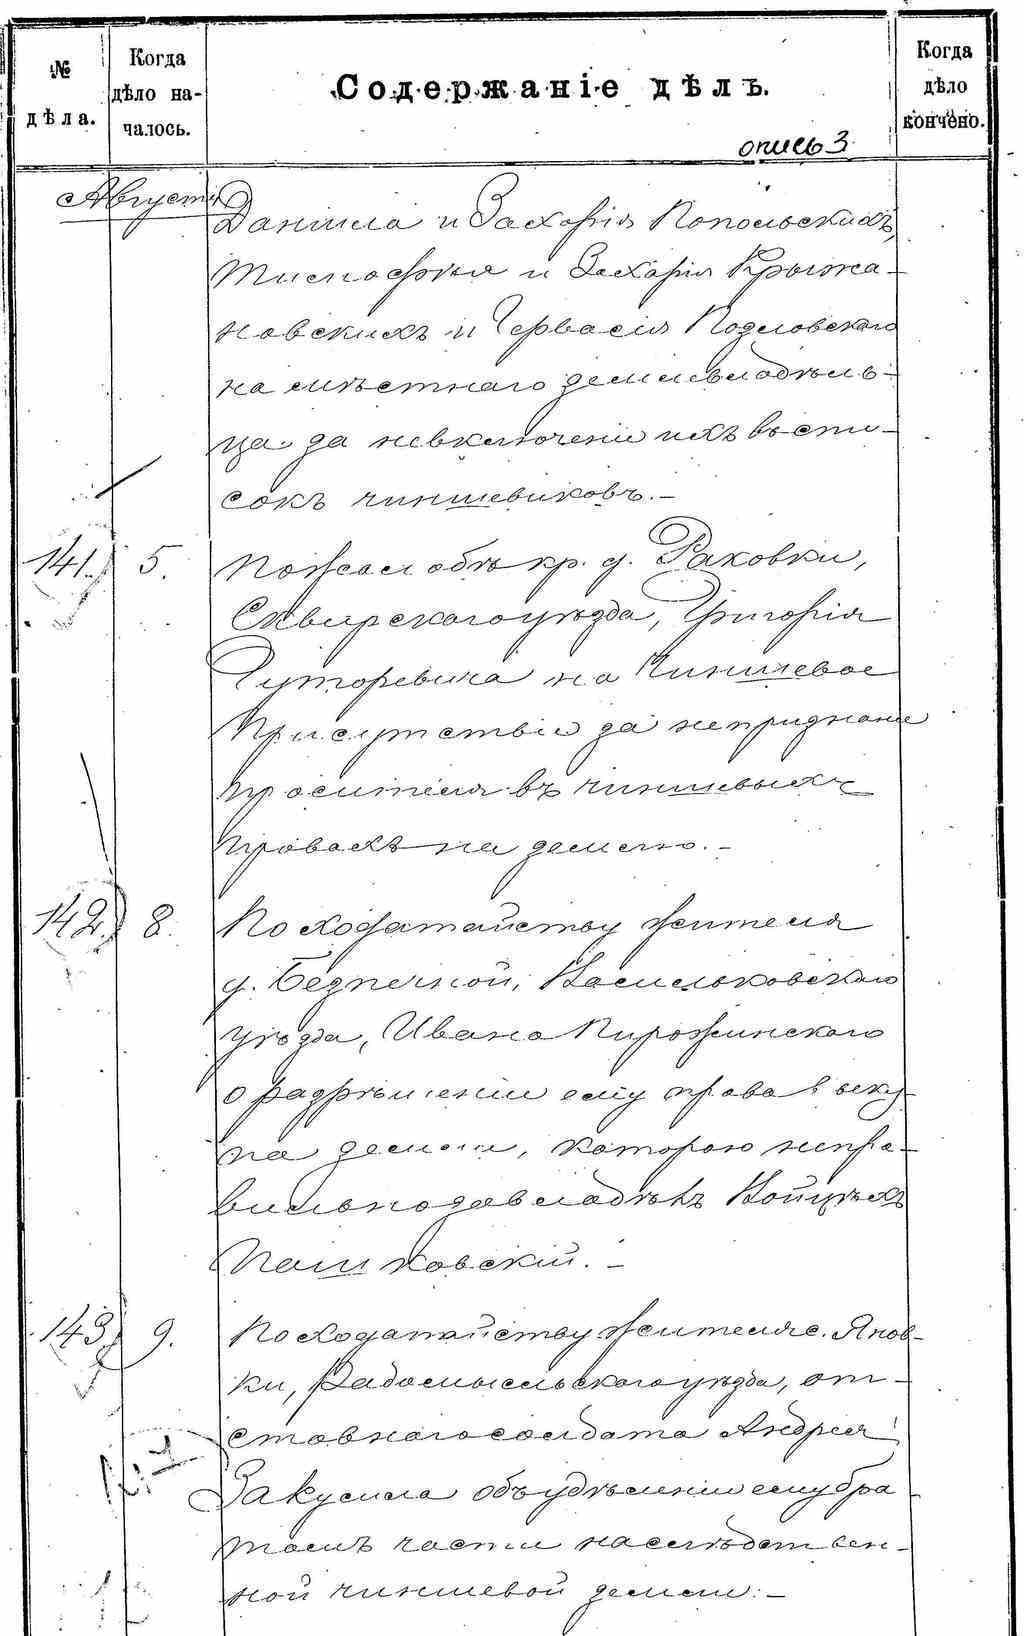 №
дѣла.
Когда
дѣло на-
чалось.
Содержаніе дѣлъ.
Когда
дѣло
кончено.
опись 3
Августъ
Даніила и Захарія Попольскихъ,
Тимофѣя и Захарія Крыжа-
новскихъ и Гервасія Козловского
на мѣстнаго землевладѣль-
ца за невключеніе ихъ въ спи-
сокъ чиншевиковъ.-
141. 5. По жалобѣ кр. д. Раковки,
Сквирскаго уѣзда, Григорія
Гуторевича на Чиншевое
Присутствіе за непризнаніе
просителя въ чиншевыхъ
правахъ на землю.-
142. 8. По ходатайству жителя
д. Безпечной, Васильковскаго
уѣзда, Ивана Пирожинскаго
о разрѣшеніи ему права выку-
па земли, которою непра-
вильно завладѣлъ Войцѣхъ
Пашковскій.-
143. 9. По ходатайству жителя с. Янов-
ки, Радомысльскаго уѣзда, от-
ставнаго солдата Андрея
Закусила объ удѣленіи ему бра
томъ части наслѣдствен-
ной чиншевой земли.-